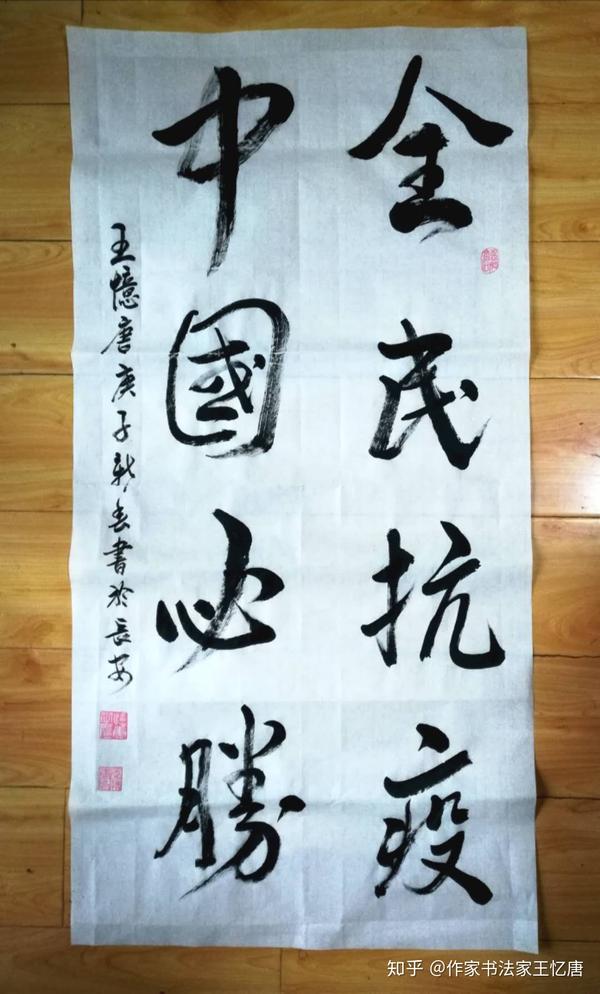 全民抗疫
中國必勝
王憶唐庚子新春書於長安
知乎 @作家书法家王忆唐